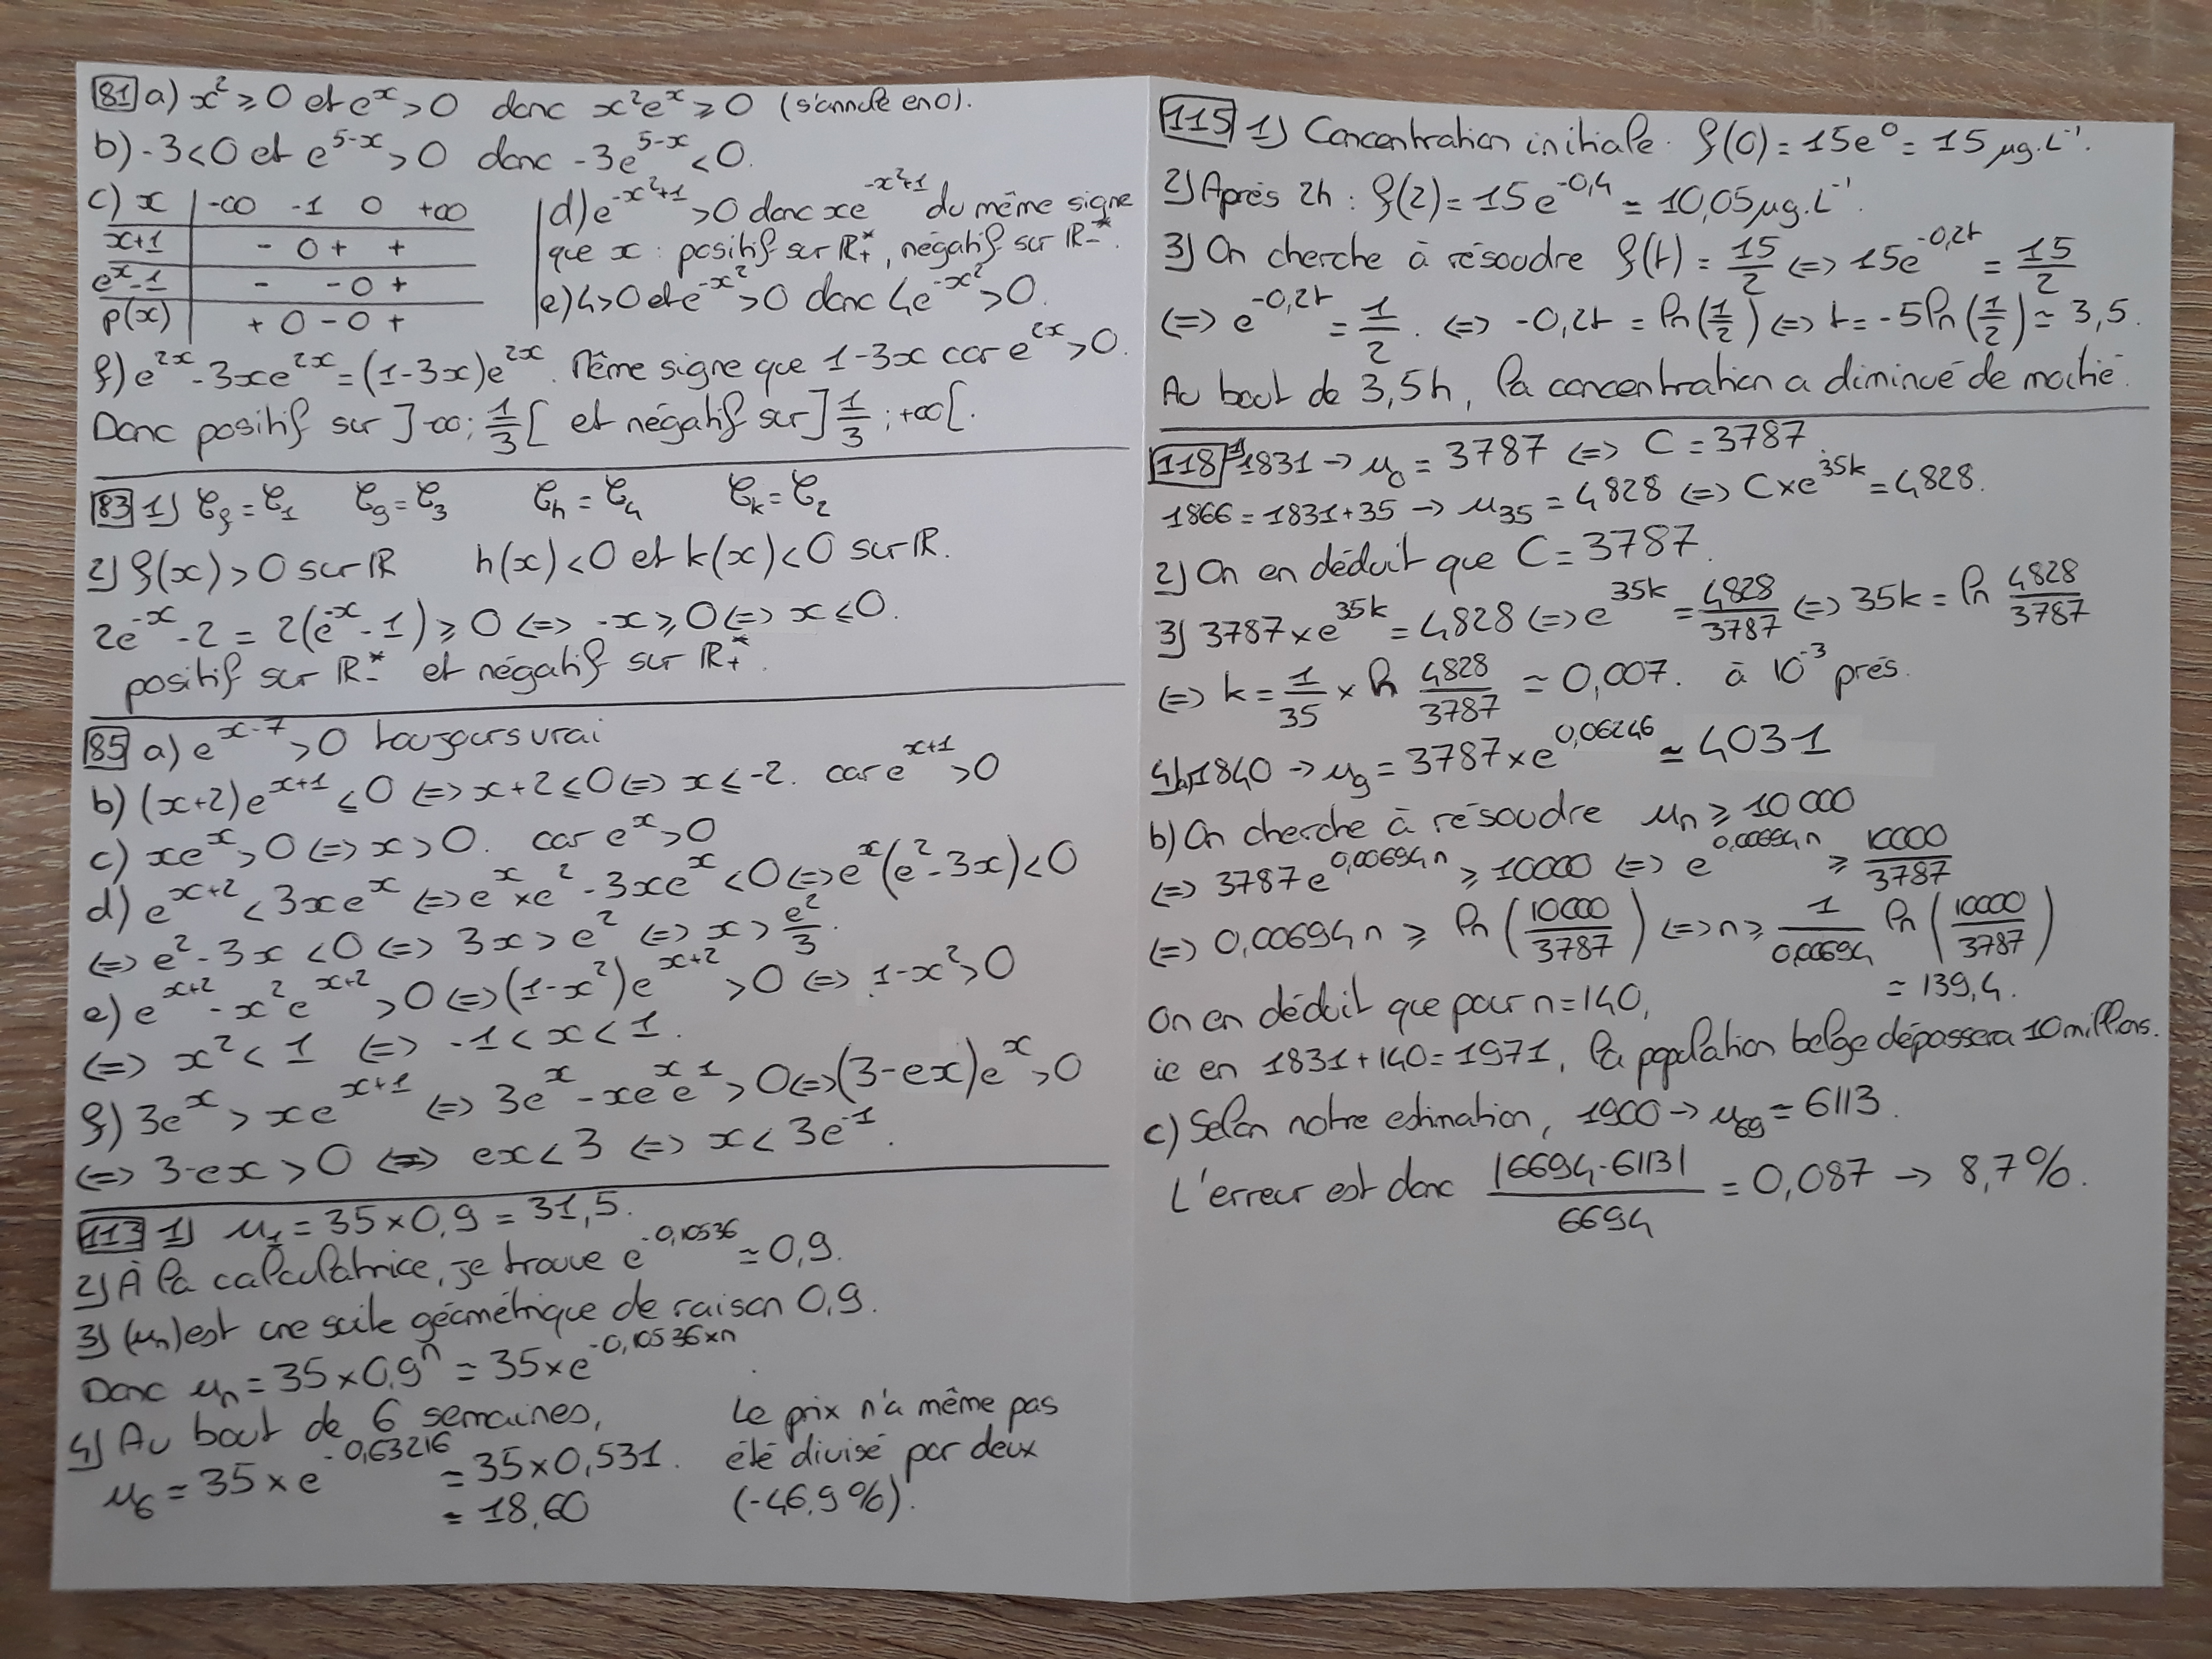 81 a) x² ≥ 0 et eˣ > 0 donc x²eˣ ≥ 0 (s'annule en 0).
b) -3 < 0 et e^(5-x) > 0 donc -3e^(5-x) < 0.
c) x | -∞ -1 0 +∞
x+1 | - 0 + +
eˣ-1 | - - 0 +
p(x) | + 0 - 0 +
d) e^(-x²+1) > 0 donc xe^(-x²+1) du même signe
que x : positif sur ℝ₊*, négatif sur ℝ₋*.
e) 4 > 0 et e^(-x²) > 0 donc 4e^(-x²) > 0.
f) e^(2x) - 3xe^(2x) = (1-3x)e^(2x). Même signe que 1-3x car e^(2x) > 0.
Donc positif sur ]-∞; 1/3[ et négatif sur ]1/3; +∞[.
83 1) 𝒞f = 𝒞1 𝒞g = 𝒞3 𝒞h = 𝒞4 𝒞k = 𝒞2
2) f(x) > 0 sur ℝ h(x) < 0 et k(x) < 0 sur ℝ.
2e^(-x) - 2 = 2(e^(-x) - 1) ≥ 0 ⇔ -x ≥ 0 ⇔ x ≤ 0.
positif sur ℝ₋* et négatif sur ℝ₊*.
85 a) e^(x-7) > 0 toujours vrai
b) (x+2)e^(x+1) ≤ 0 ⇔ x+2 ≤ 0 ⇔ x ≤ -2. car e^(x+1) > 0
c) xeˣ > 0 ⇔ x > 0. car eˣ > 0
d) e^(x+2) < 3xeˣ ⇔ eˣ × e² - 3xeˣ < 0 ⇔ eˣ(e² - 3x) < 0
⇔ e² - 3x < 0 ⇔ 3x > e² ⇔ x > e²/3.
e) e^(x+2) - x²e^(x+2) > 0 ⇔ (1-x²)e^(x+2) > 0 ⇔ 1-x² > 0
⇔ x² < 1 ⇔ -1 < x < 1.
f) 3eˣ > xe^(x+1) ⇔ 3eˣ - xeˣe¹ > 0 ⇔ (3-ex)eˣ > 0
⇔ 3-ex > 0 ⇔ ex < 3 ⇔ x < 3e⁻¹.
113 1) u₁ = 35 × 0,9 = 31,5.
2) À la calculatrice, je trouve e^(-0,10536) ≃ 0,9.
3) (uₙ) est une suite géométrique de raison 0,9.
Donc uₙ = 35 × 0,9ⁿ = 35 × e^(-0,10536×n).
4) Au bout de 6 semaines,
u₆ = 35 × e^(-0,63216) = 35 × 0,531.
≃ 18,60
Le prix n'a même pas
été divisé par deux
(-46,9%).
115 1) Concentration initiale. f(0) = 15e⁰ = 15 µg.L⁻¹.
2) Après 2h : f(2) = 15e^(-0,4) ≃ 10,05 µg.L⁻¹.
3) On cherche à résoudre f(t) = 15/2 ⇔ 15e^(-0,2t) = 15/2
⇔ e^(-0,2t) = 1/2. ⇔ -0,2t = ln(1/2) ⇔ t = -5ln(1/2) ≃ 3,5.
Au bout de 3,5h, la concentration a diminué de moitié.
118 1) 1831 → u₀ = 3787 ⇔ C = 3787.
1866 = 1831+35 → u₃₅ = 4828 ⇔ C×e^(35k) = 4828.
2) On en déduit que C = 3787.
3) 3787 × e^(35k) = 4828 ⇔ e^(35k) = 4828/3787 ⇔ 35k = ln 4828/3787
⇔ k = 1/35 × ln 4828/3787 ≃ 0,007. à 10⁻³ près.
4) a) 1840 → u₉ = 3787 × e^(0,06246) ≃ 4031
b) On cherche à résoudre uₙ ≥ 10 000
⇔ 3787e^(0,00694n) ≥ 10000 ⇔ e^(0,00694n) ≥ 10000/3787
⇔ 0,00694n ≥ ln(10000/3787) ⇔ n ≥ 1/0,00694 ln(10000/3787)
≃ 139,4.
On en déduit que pour n=140,
ie en 1831+140=1971, la population belge dépassera 10 millions.
c) Selon notre estimation, 1900 → u₆₉ = 6113.
L'erreur est donc |6694-6113|/6694 = 0,087 → 8,7%.